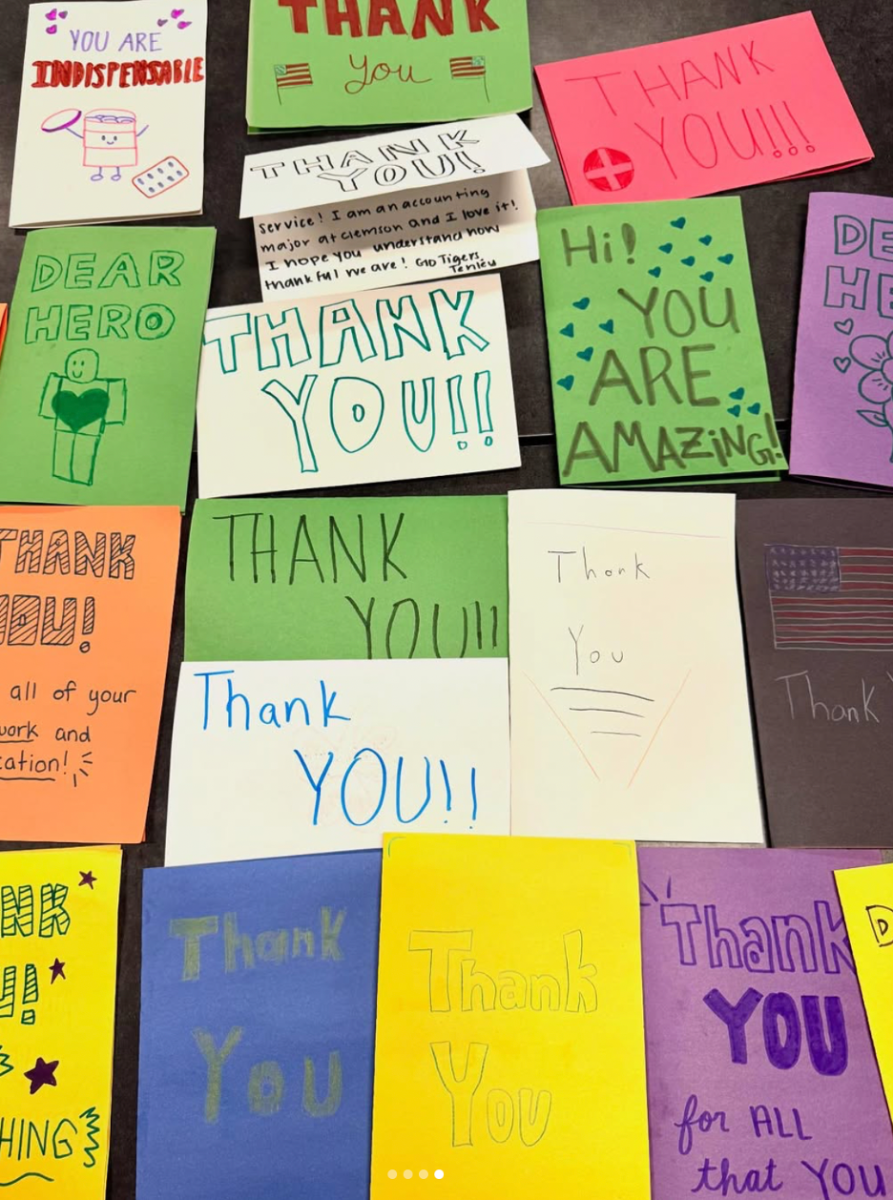 YOU ARE
INDISPENSABLE
THANK
You
THANK
YOU!!!
THANK
YOU!
service! I am an accounting
major at clemson and I love it!
I hope you understand how
thankful we are! Go Tigers,
DEAR
HERO
THANK
YOU!!
Hi!
YOU
ARE
AMAZING!
DE
HE
THANK
YOU!
all of your
work and
cation!
THANK
YOU!!
Thank
You
Thank
Thank
YOU!!
NK
U!
HING
Thank
You
Thank
You
Thank
YOU
for ALL
that YOU
D